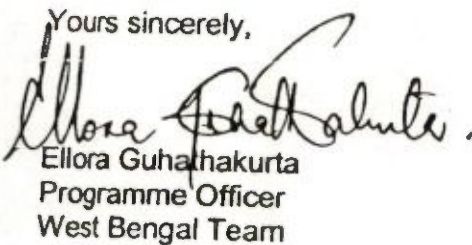 Yours sincerely,
Ellora Guhathakurta
Ellora Guhathakurta
Programme Officer
West Bengal Team